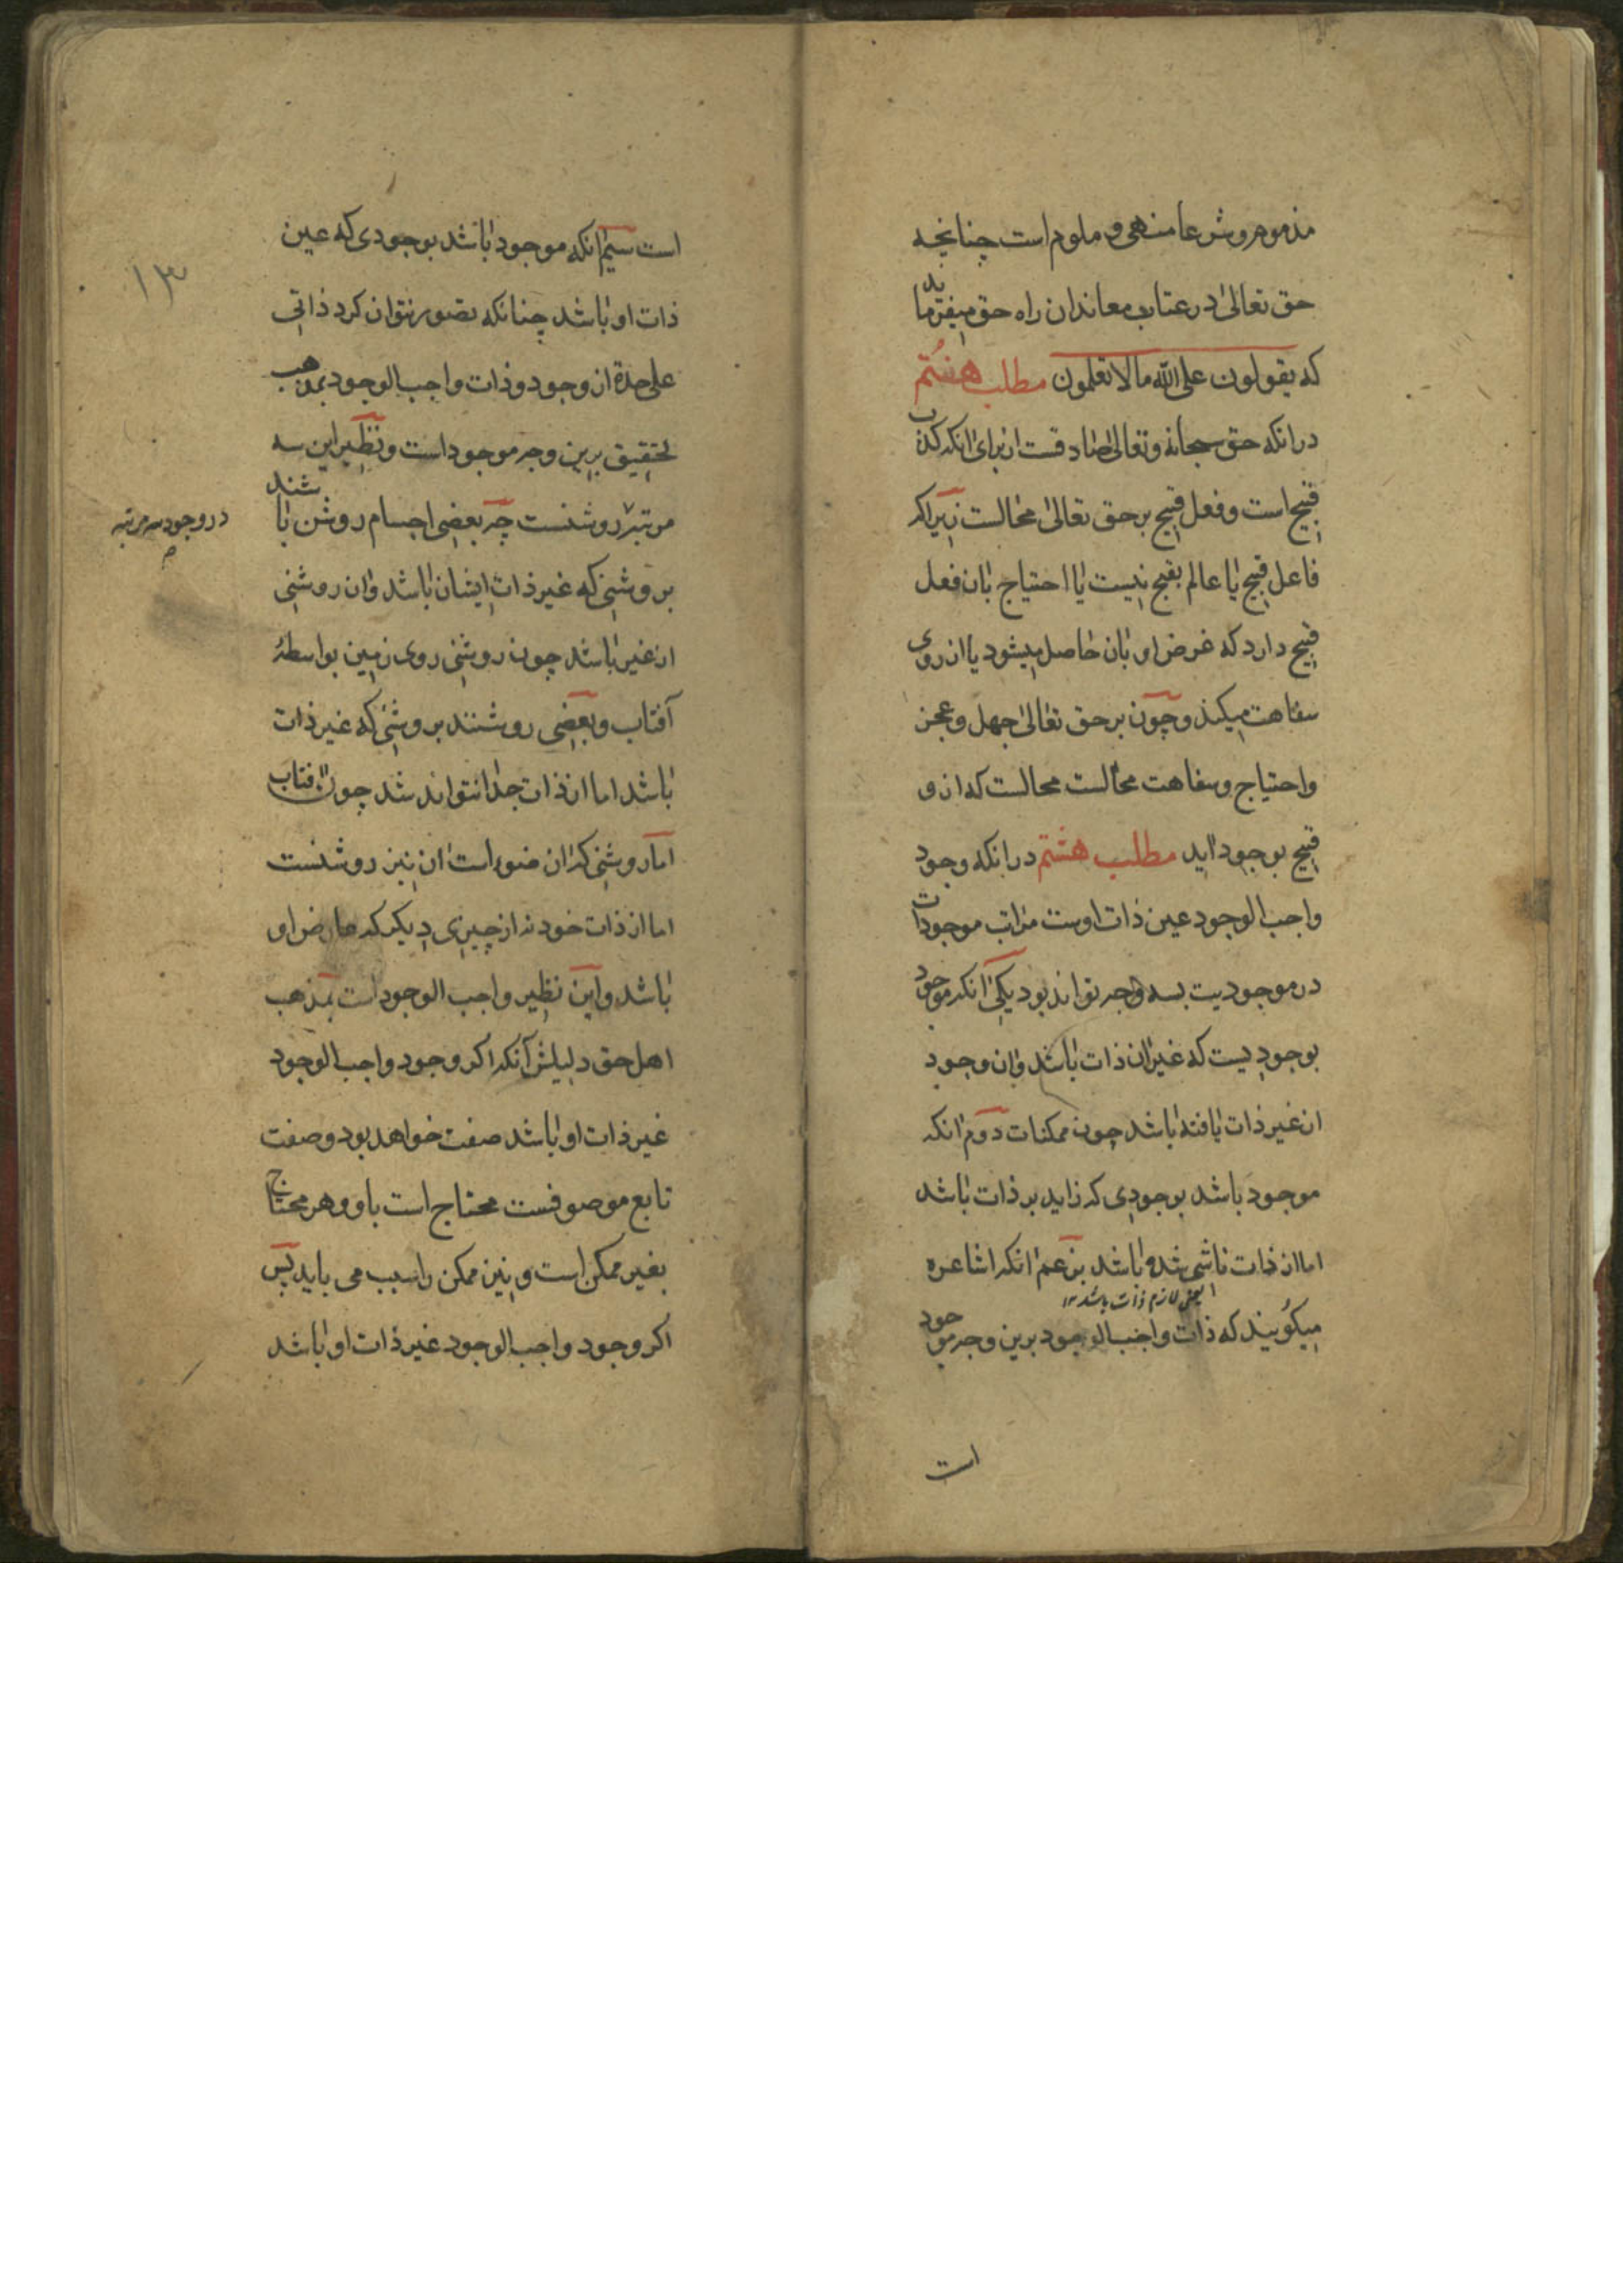 مذموم و شرعا منهی و ملوم است چنانچه
حق تعالی در عتاب معاندان راه حق میفرماید
که یقولون علی الله ما لا تعلمون مطلب هشتم
در انکه حق سبحانه و تعالی صادقست از برای انکه کذب
قبیح است و فعل قبیح بر حق تعالی محالست زیرا که
فاعل قبیح یا عالم بقبح نیست یا احتیاج بان فعل
قبیح دارد که غرض او بان حاصل میشود یا از روی
سفاهت میکند و چون بر حق تعالی جهل و عجز
و احتیاج و سفاهت محالست محالست که از و
قبیح بوجود اید مطلب هشتم در انکه وجود
واجب الوجود عین ذات اوست مراتب موجودات
در موجودیت بسه وجه تواند بود یکی انکه موجود
بوجودیست که غیر ان ذات باشد و ان وجود
از غیر ذات یافته باشد چون ممکنات دوم انکه
موجود باشد بوجودی که زاید بر ذات باشد
اما از ذات ناشی شده باشد بزعم انکه اشاعره
لازم ذات باشد ۱۲
میکویند که ذات واجب الوجود برین وجه موجود
است
است سیم انکه موجود باشد بوجودی که عین
۱۳
ذات او باشد چنانکه تصور نتوان کرد ذاتی
علی حدة از وجود و ذات واجب الوجود بمذهب
تحقیق برین وجه موجود است و نظیر این سه
مرتبه روشنست چه بعضی اجسام روشن باشند
در وجود سه مرتبه
بروشنی که غیر ذات ایشان باشد و ان روشنی
از غیر باشد چون روشنی روی زمین بواسطهٔ
آفتاب و بعضی روشنند بروشنی که غیر ذات
باشد اما از ذات جدا نتواند شد چون آفتاب
اما روشنی که ان ضوء است ان نیز روشنست
اما از ذات خود نه از چیزی دیکر که عارض او
باشد و این نظیر واجب الوجود است بمذهب
اهل حق دلیلش آنکه اکر وجود واجب الوجود
غیر ذات او باشد صفت خواهد بود و صفت
تابع موصوفست محتاج است باو و هر محتاج
بغیر ممکن است و نیز ممکن را سبب می باید پس
اکر وجود واجب الوجود غیر ذات او باشد